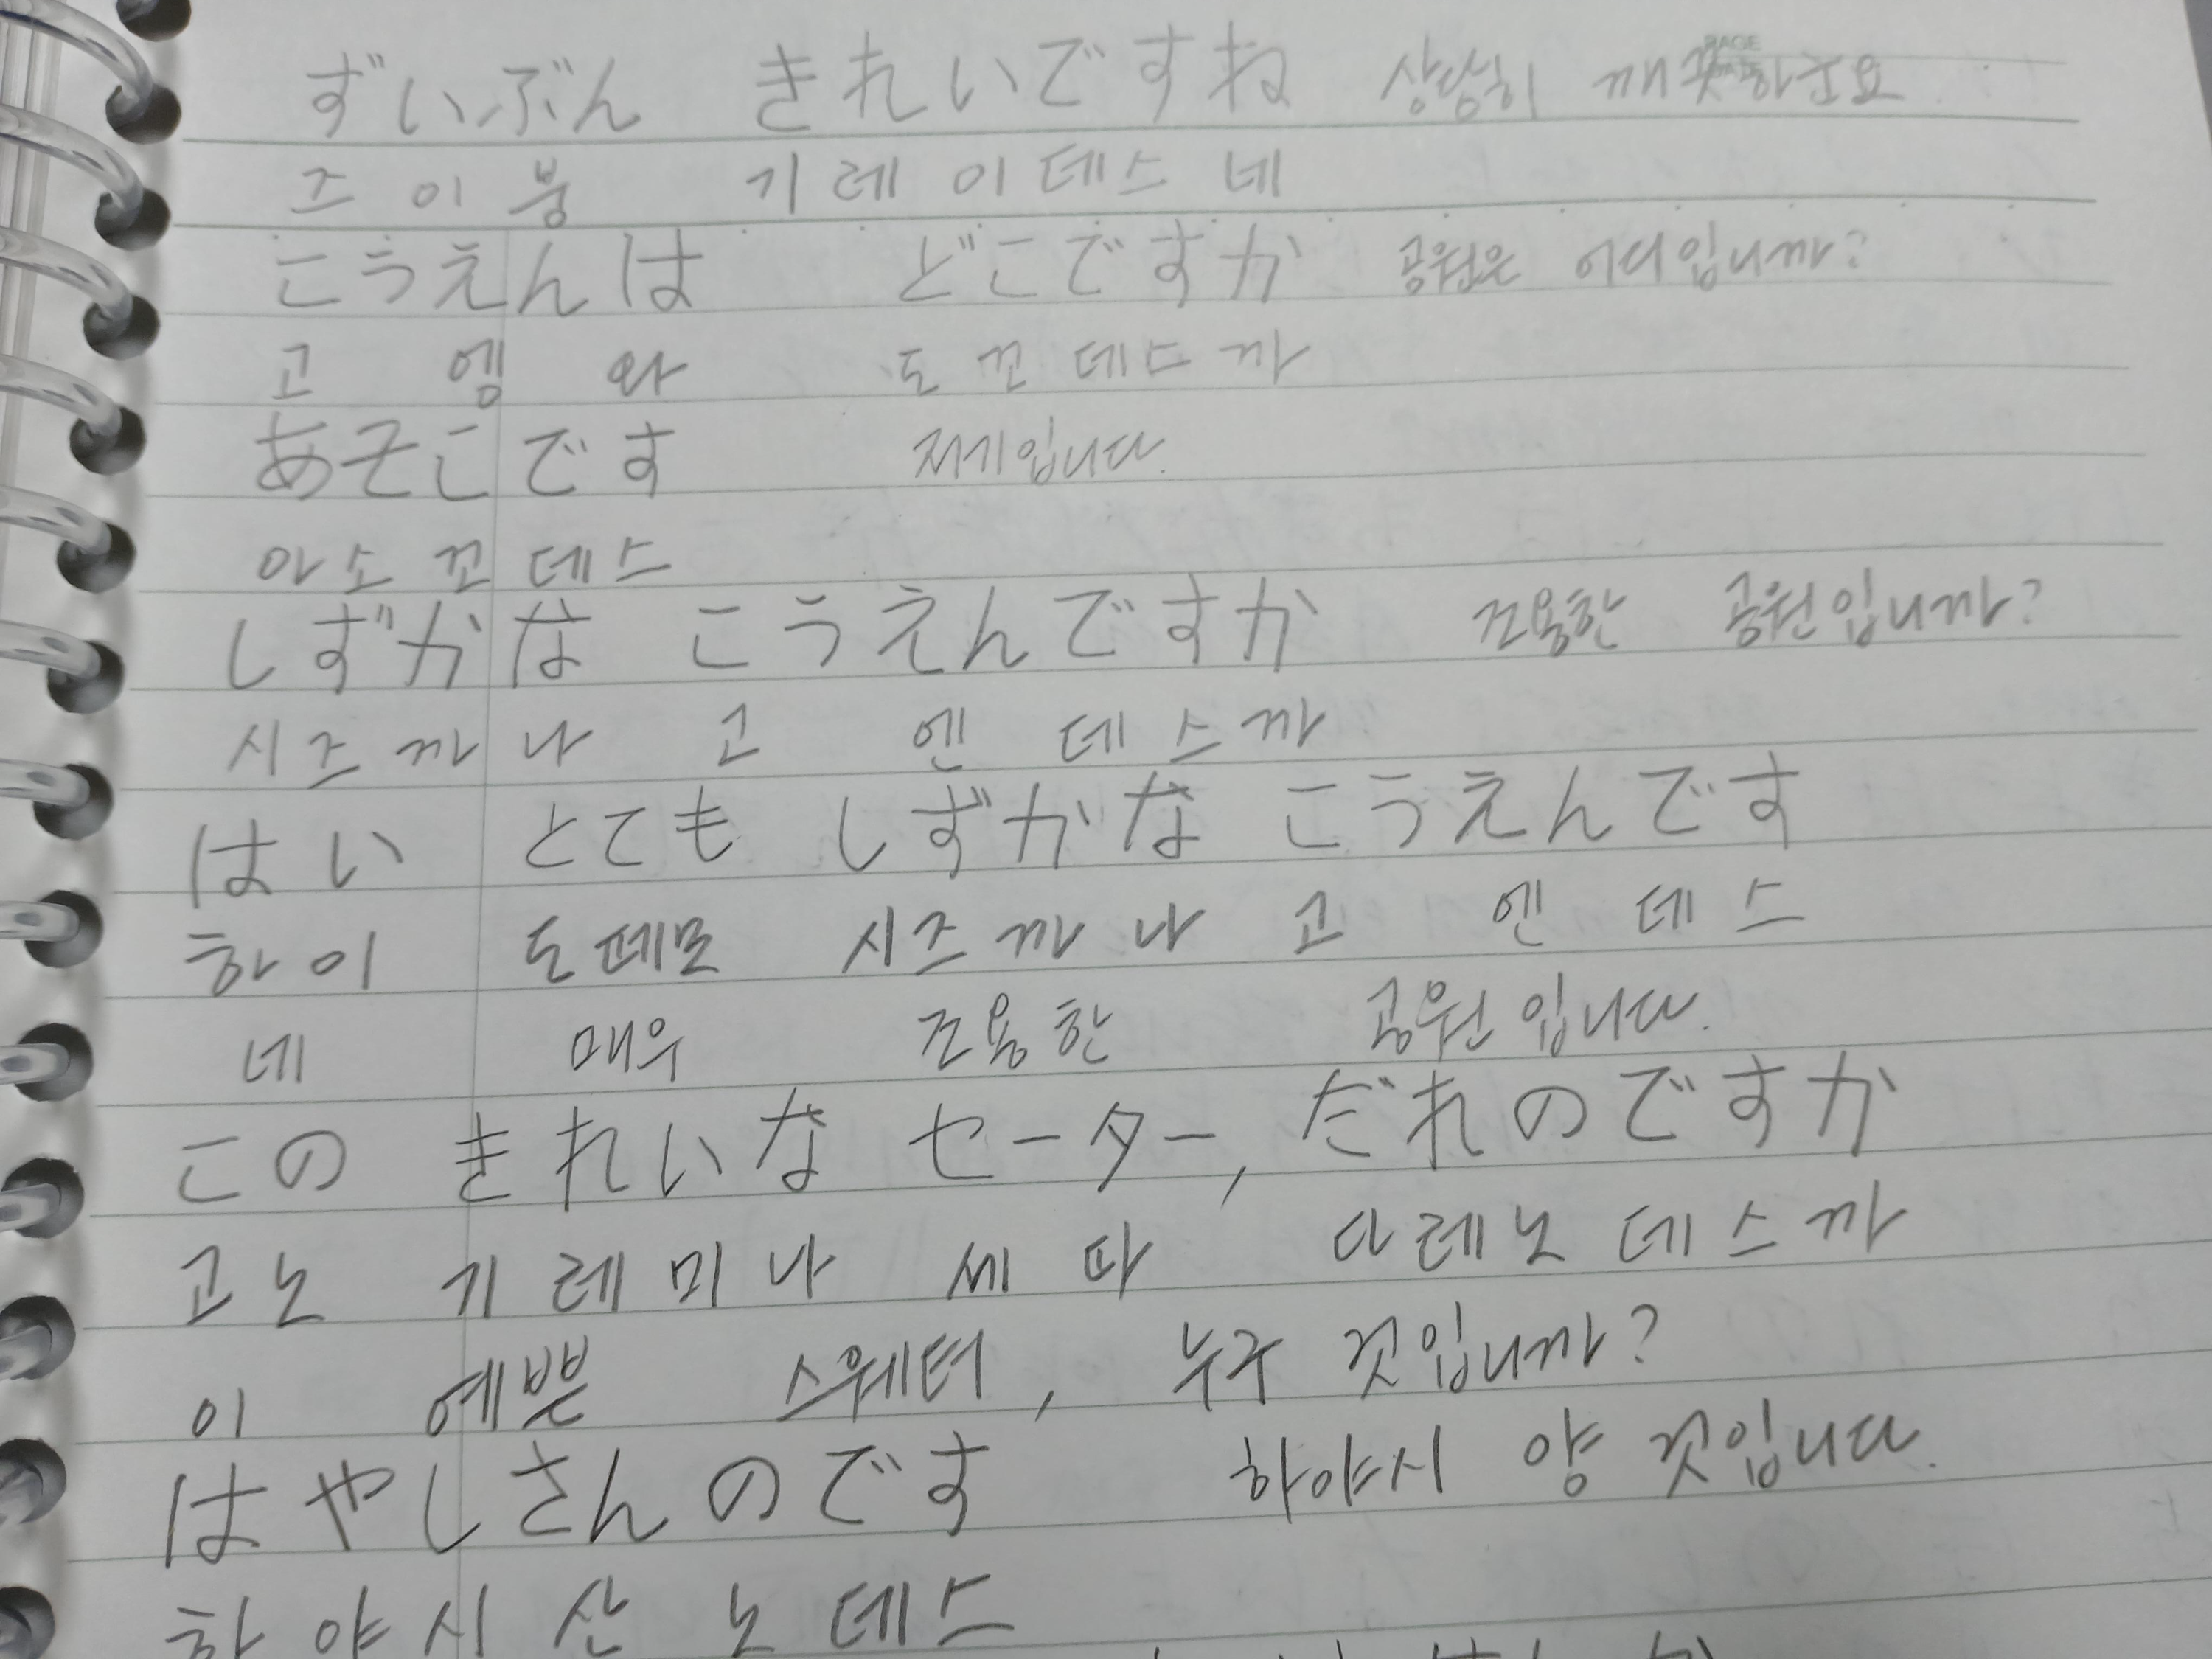 ずいぶん きれいですね 상당히 깨끗하군요
즈이붕 기레이데스네
こうえんは どこですか 공원은 어디입니까?
고 엥 와 도꼬데스까
あそこです 저기입니다.
아소꼬데스
しずかな こうえんですか 조용한 공원입니까?
시즈까나 고 엔 데스까
はい とても しずかな こうえんです
하이 도떼모 시즈까나 고 엔 데스
네 매우 조용한 공원입니다.
この きれいな セーター, だれのですか
고노 기레미나 세 따 다레노데스까
이 예쁜 스웨터, 누구 것입니까?
はやしさんのです 하야시 양 것입니다.
하야시산노데스